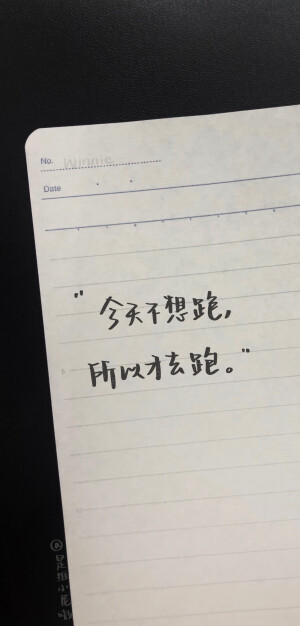 No. Winnie
Date
“今天不想跑,
所以才去跑。”